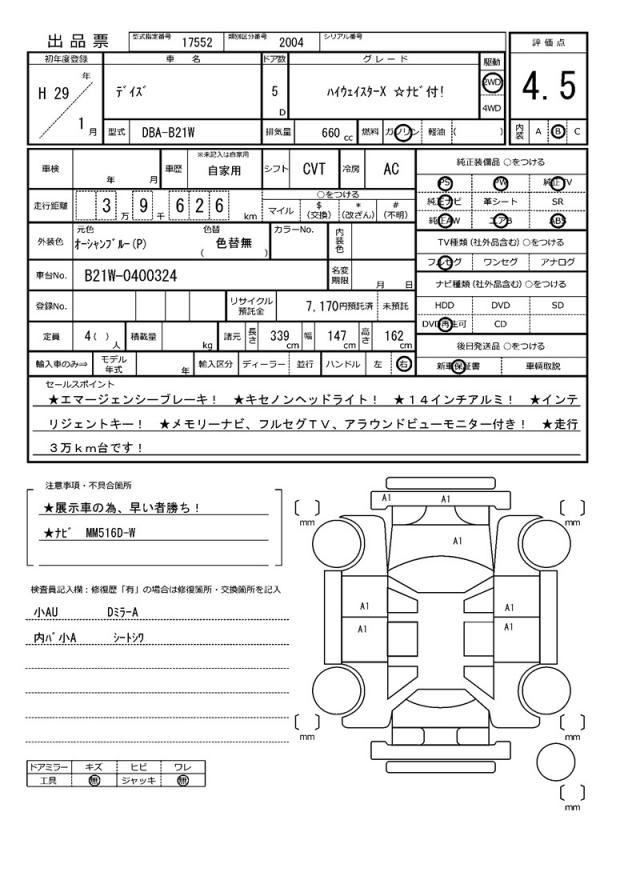 出品票 型式指定番号 17552 類別区分番号 2004 シリアル番号
初年度登録 車名 ドア数 グレード 駆動 評価点
H 29 年 1 月
ﾃﾞｲｽﾞ 5 D ﾊｲｳｪｲｽﾀｰX ☆ﾅﾋﾞ付! 2WD 4WD 4.5
型式 DBA-B21W 排気量 660 cc 燃料 ガソリン 軽油 ( ) 内装 A B C
車検 年 月 車歴 ※未記入は自家用 自家用 シフト CVT 冷房 AC
純正装備品 ○をつける
PS PW 純正TV
純正ナビ 革シート SR
純正AW エアB ABS
走行距離 3 万 9 千 6 2 6 km
○をつける
マイル $(交換) *(改ざん) #(不明)
外装色 元色 ｵｰｼｬﾝﾌﾞﾙｰ(P) 色替 ( 色替無 ) カラーNo. 内装色
TV種類 (社外品含む) ○をつける
フルセグ ワンセグ アナログ
車台No. B21W-0400324 名変期限 月 日
ナビ種類 (社外品含む) ○をつける
HDD DVD SD
DVD再生可 CD
登録No. リサイクル預託金 7,170円預託済 未預託
定員 4( ) 人 積載量 kg 諸元 長さ 339 cm 幅 147 cm 高さ 162 cm
後日発送品 ○をつける
新車保証書 車輌取説
輸入車のみ⇒ モデル年式 年 輸入区分 ディーラー 並行 ハンドル 左 右
セールスポイント
★エマージェンシーブレーキ！ ★キセノンヘッドライト！ ★１４インチアルミ！ ★インテ
リジェントキー！ ★メモリーナビ、フルセグＴＶ、アラウンドビューモニター付き！ ★走行
３万ｋｍ台です！
注意事項・不具合箇所
★展示車の為、早い者勝ち！
★ﾅﾋﾞ MM516D-W
検査員記入欄：修復歴「有」の場合は修復箇所・交換箇所を記入
小AU DﾐﾗｰA
内ﾊﾞ小A ｼｰﾄｼﾜ
ドアミラー キズ ヒビ ワレ
工具 無 ジャッキ 無
A1 A1
A1
A1 A1
A1 A1
mm mm
mm mm
mm